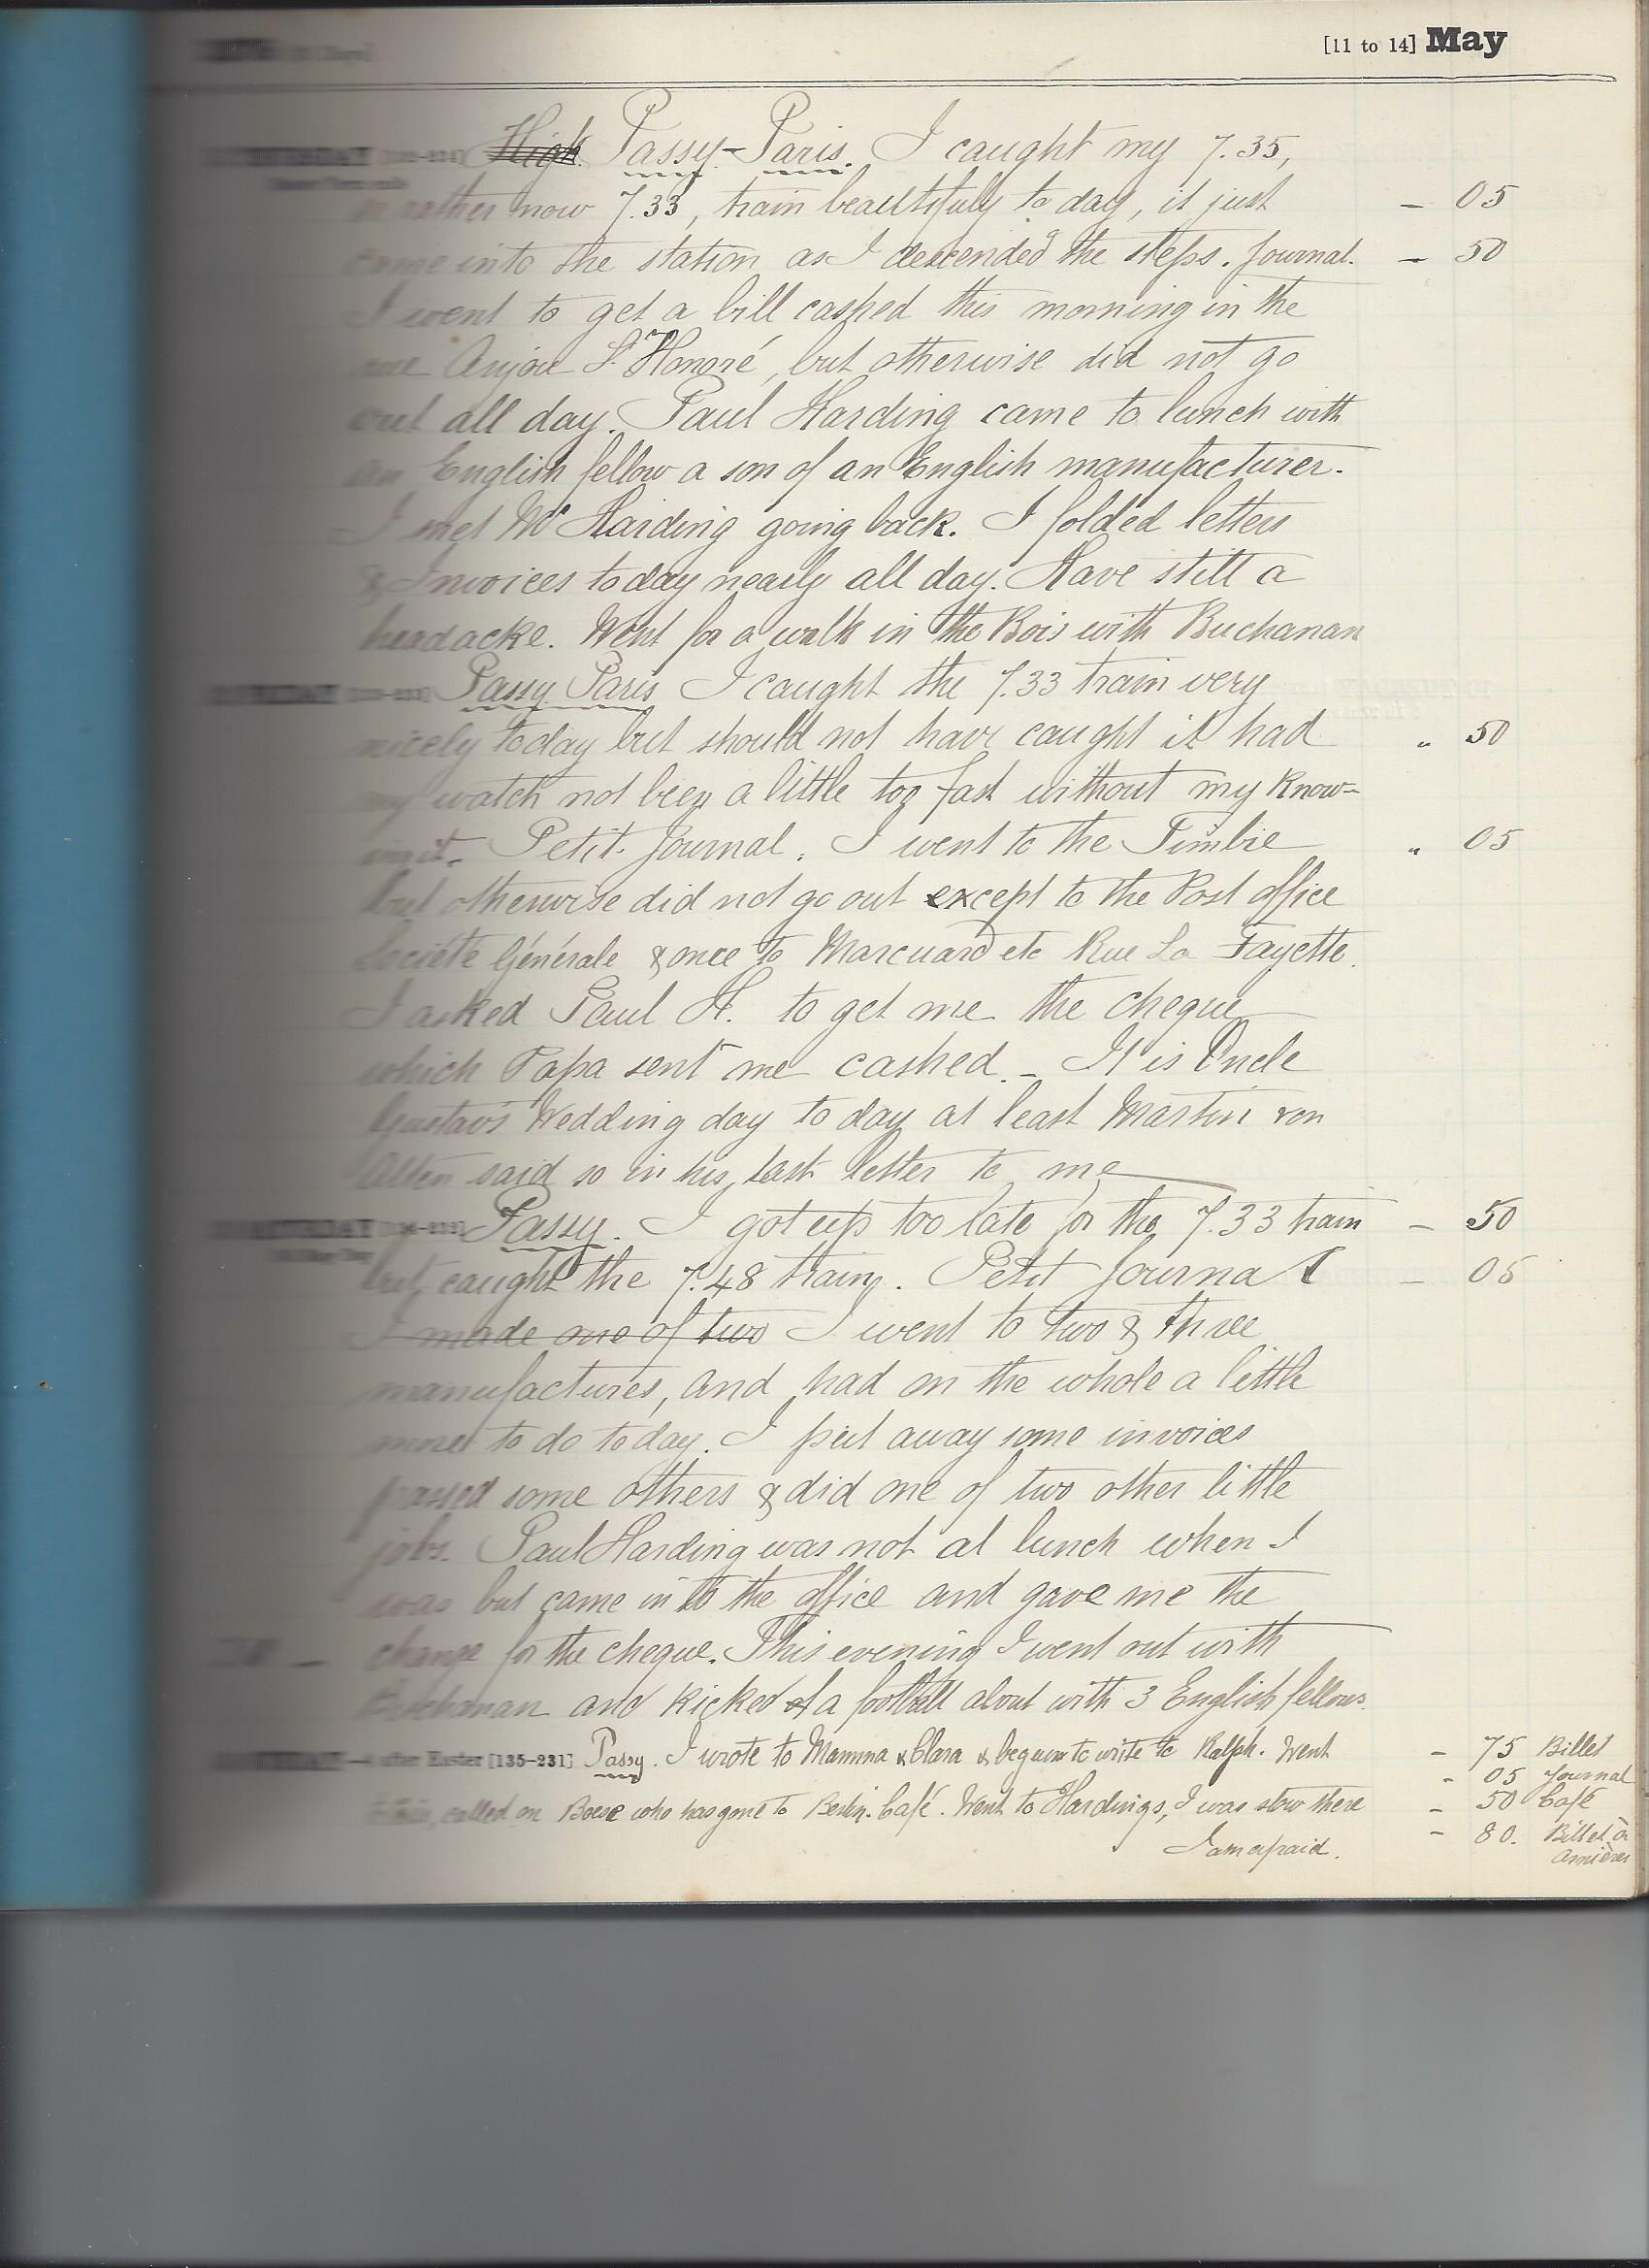 [11 to 14] May
High Passy-Paris. I caught my 7.35,
or rather now 7.33, train beautifuly to day, it just – 05
came into the station as I descended the steps. Journal. – 50
I went to get a bill cashed this morning in the
rue Anjou St Honoré, but otherwise did not go
out all day. Paul Harding came to lunch with
an English fellow a son of an English manufacturer.
I met Mr Harding going back. I folded letters
& Invoices today nearly all day. Have still a
headacke. Went for a walk in the Bois with Buchanan
Passy Paris I caught the 7.33 train very
nicely today but should not have caught it had " 50
my watch not been a little too fast without my know-
ing it. Petit Journal. I went to the Timbre " 05
but otherwise did not go out except to the Post office
Societé Générale & once to Marcuard etc Rue La Fayette.
I asked Paul H. to get me the cheque
which Papa sent me cashed. – It is Uncle
Gustav's Wedding day to day at least Martin von
Alten said so in his last letter to me
SATURDAY Passy. I got up too late for the 7.33 train – 50
but caught the 7.48 train. Petit Journal – 05
I made one of two I went to two & three
manufactures, and had on the whole a little
more to do today. I put away some invoices
passed some others & did one of two other little
jobs. Paul Harding was not at lunch when I
was but came in to the office and gave me the
change for the cheque. This evening I went out with
Buchanan and kicked of a football about with 3 English fellows.
after Easter [135-231] Passy. I wrote to Mamma & Clara & begun to write to Ralph. Went – 75 Billet
- 05 Journal
called on Boese who has gone to Berlin. Café. Went to Hardings, I was slow there – 50 Café
I am afraid. - 80. Billet à
Asnières